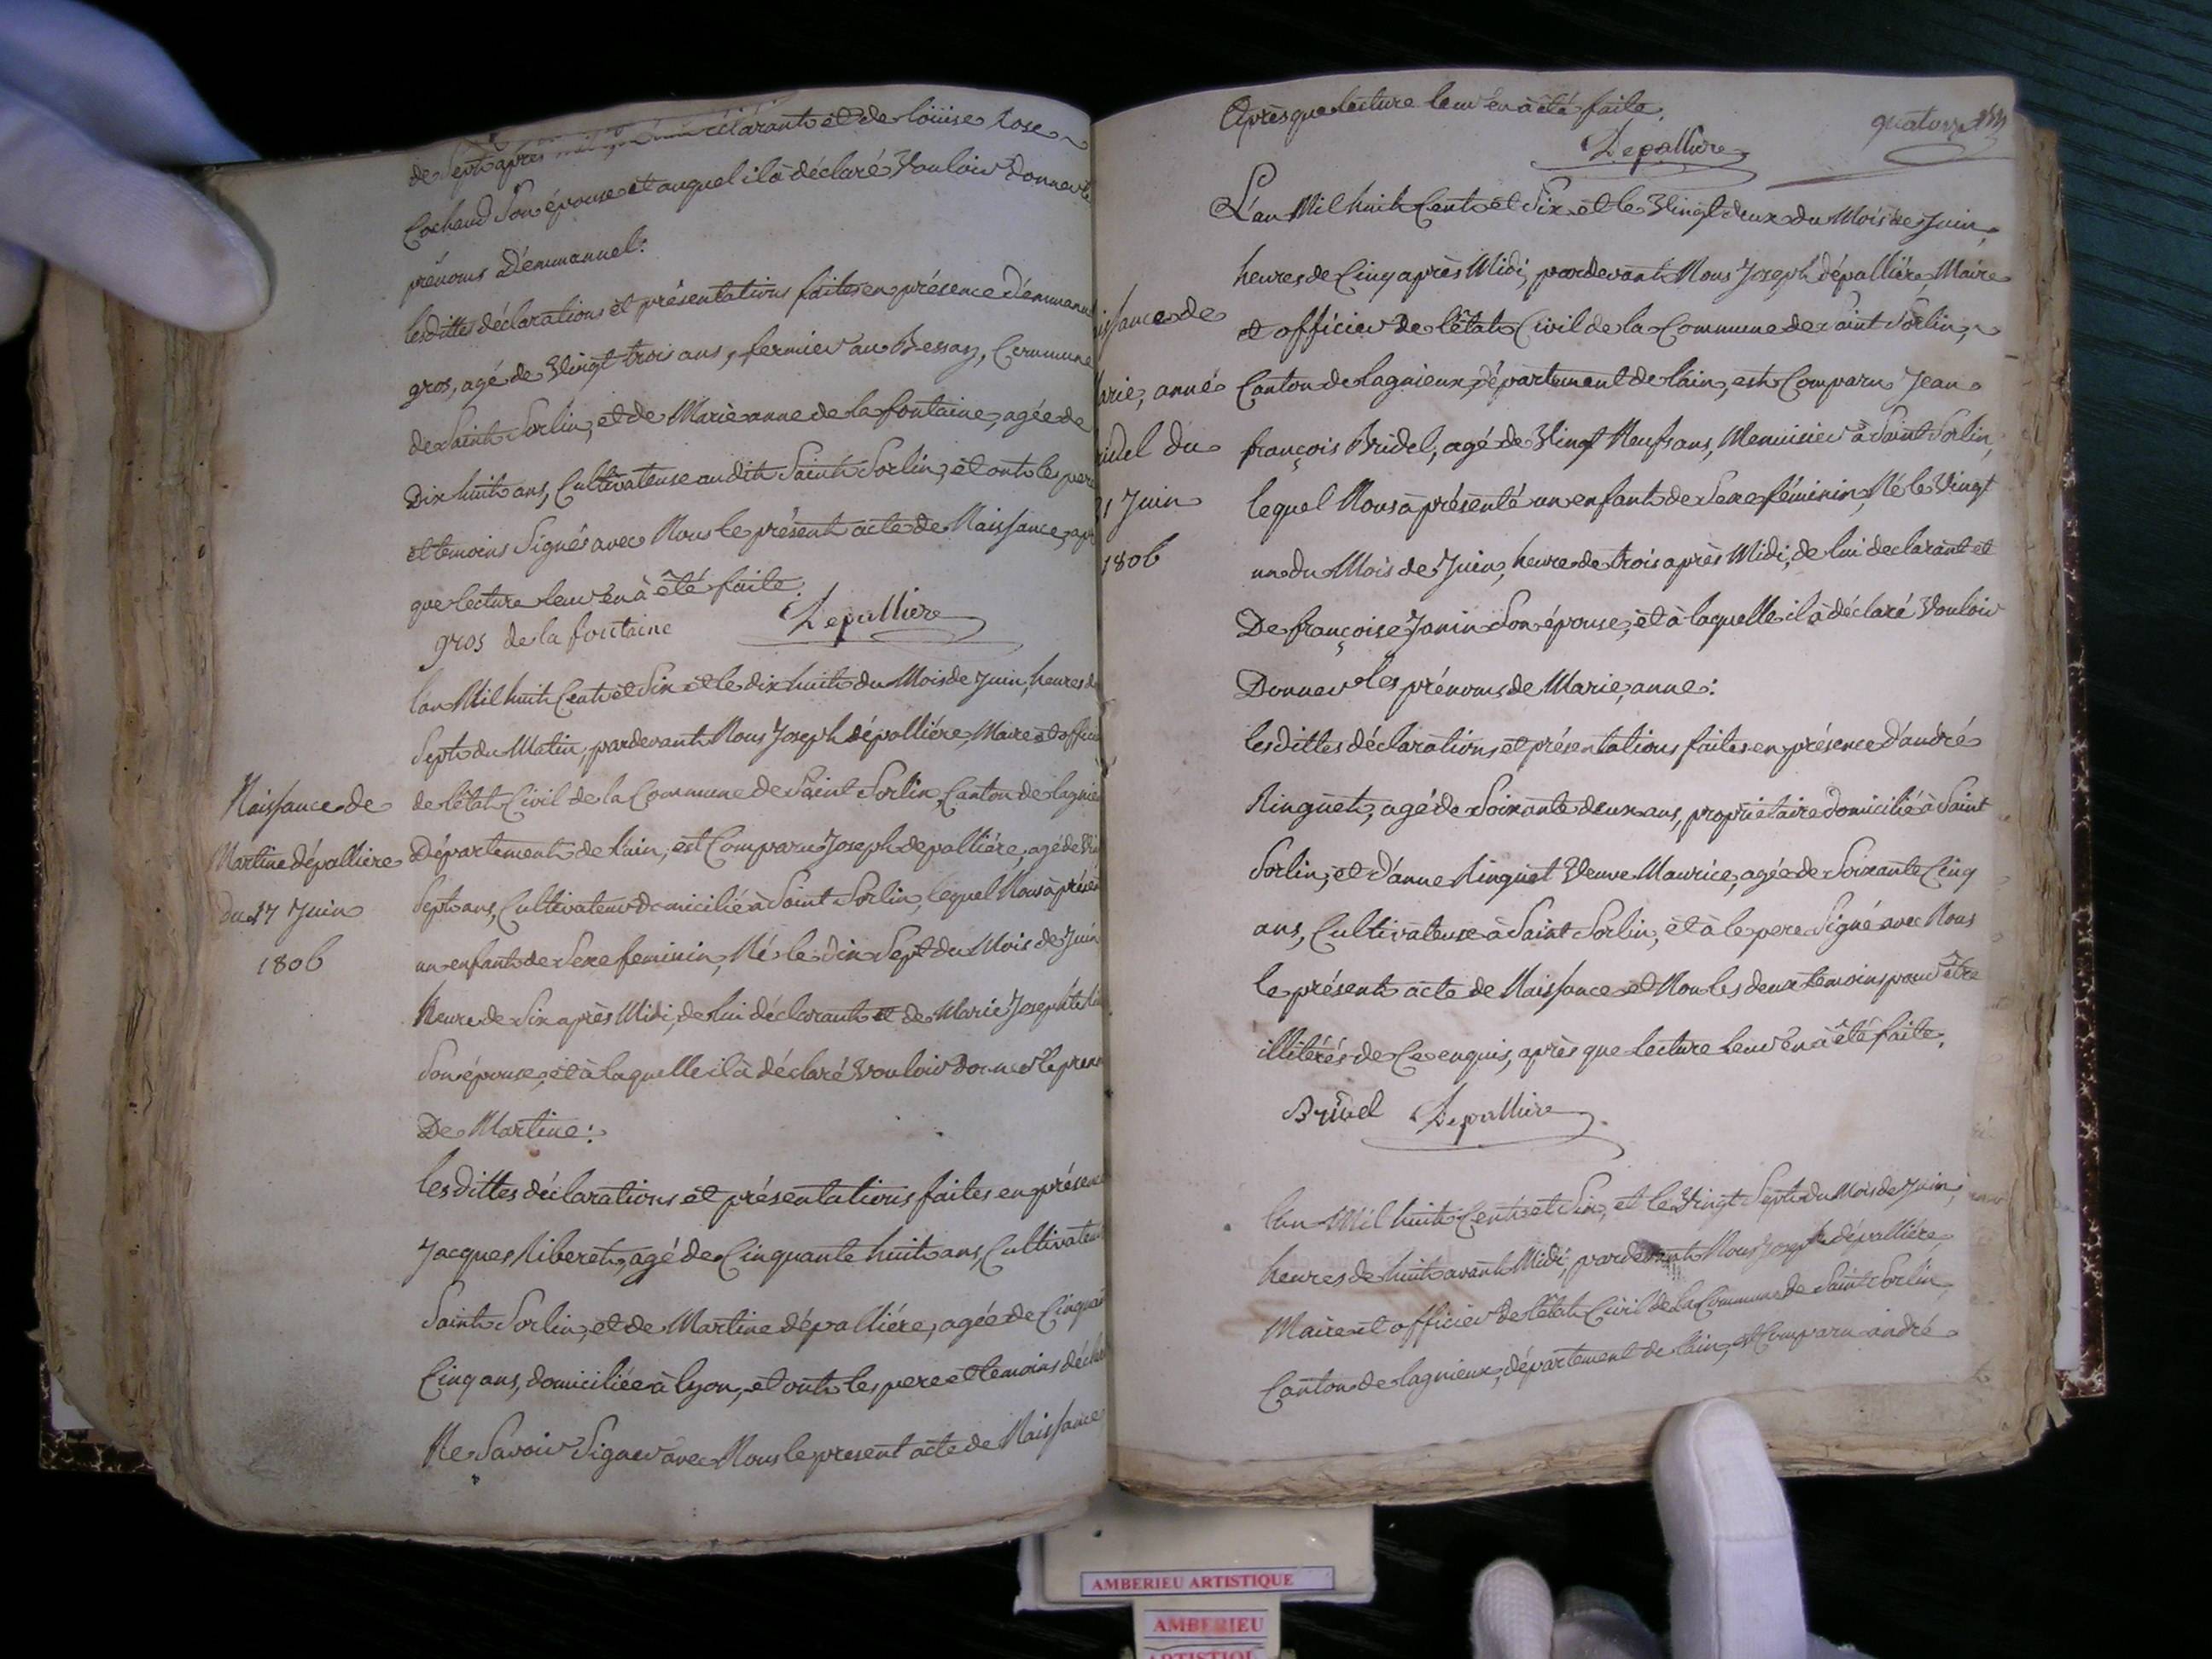 de Sept après déclarant et de loüise Rose
Cochand Son épouse et auquel il à déclaré Vouloir Donner le
prénoms d'émmanuel:
lesdittes déclarations et présentations faites en présence d'émmanuel
gros, agé de Vingt trois ans, fermier au Bessay, Commune
de Saint Sorlin, et de Marie anne de la fontaine, agée de
Dix huit ans, Cultivateuse audit Saint Sorlin, et ont les pere
et temoins Signés avec Nous le présent acte de Naissance, apr
que lecture leur en à été faite.
gros de la fontaine Depalliere
l'an Mil huit Cent et Six et le dix huit du Mois de Juin, heures de
Sept du Matin, pardevant Nous Joseph dépalliére, Maire et offici
Naissance de
Martine dépalliere
du 17 Juin
1806
de l'état Civil de la Commune de Saint Sorlin, Canton de lagnieu
Département de l'ain, est Comparu Joseph depalliére, agé de Vin
Sept ans, Cultivateur domicilié à Saint Sorlin, lequel Nous à présen
un enfant de Sexe feminin, Né le dix Sept du Mois de Juin
Heure de Six après Midi, de lui déclarant et de Marie Josephte
Son épouse, et à laquelle il à déclaré Vouloir Donner le pren
De Martine:
lesdittes déclarations et présentations faites en présence
Jacques Riberet, agé de Cinquante huit ans, Cultivateur
Saint Sorlin, et de Martine dépalliére, agée de Cinquan
Cinq ans, domiciliée à lyon, et ont les pere et temoins décla
Ne Savoir Signer avec Nous le present acte de Naissance
Après que lecture leur en à été faite.
Depalliere
quatorze
L'an Mil huit Cent et Six et le Vingt deux du Mois de Juin,
heures de Cinq après Midi, pardevant Nous Joseph dépalliére, Maire
et officier de l'état Civil de la Commune de Saint Sorlin,
Canton de lagnieux, département de l'ain, est Comparu Jean
françois Bridel, agé de Vingt Neuf ans, Menuisier à Saint Sorlin,
lequel Nous à présenté un enfant de Sexe féminin, Né le Vingt
un du Mois de Juin, heure de trois après Midi, de lui declarant et
De françoise Janin Son épouse, et à laquelle il à déclaré Vouloir
Donner les prénoms de Marie, anne:
issance de
arie, anne
idel du
21 Juin
1806
lesdittes déclarations et présentations faites en présence d'andré
Ringuet, agé de Soixante deux ans, propriétaire domicilié à Saint
Sorlin, et d'anne Ringuet Veuve Maurice, agée de Soixante Cinq
ans, Cultivateuse à Saint Sorlin, et à le pere Signé avec Nous
le présent acte de Naissance et Non les deux temoins pour être
illitérés de Ce enquis, après que lecture leur en à été faite.
Bridel Depalliere
l'an Mil huit Cent et Six, et le Vingt Sept du Mois de Juin,
heures de huit avant Midi, pardevant Nous Joseph dépalliére,
Maire et officier de l'état Civil de la Commune de Saint Sorlin,
Canton de lagnieux, département de l'ain, est Comparu andré
AMBERIEU ARTISTIQUE
AMBERIEU
ARTISTIQU